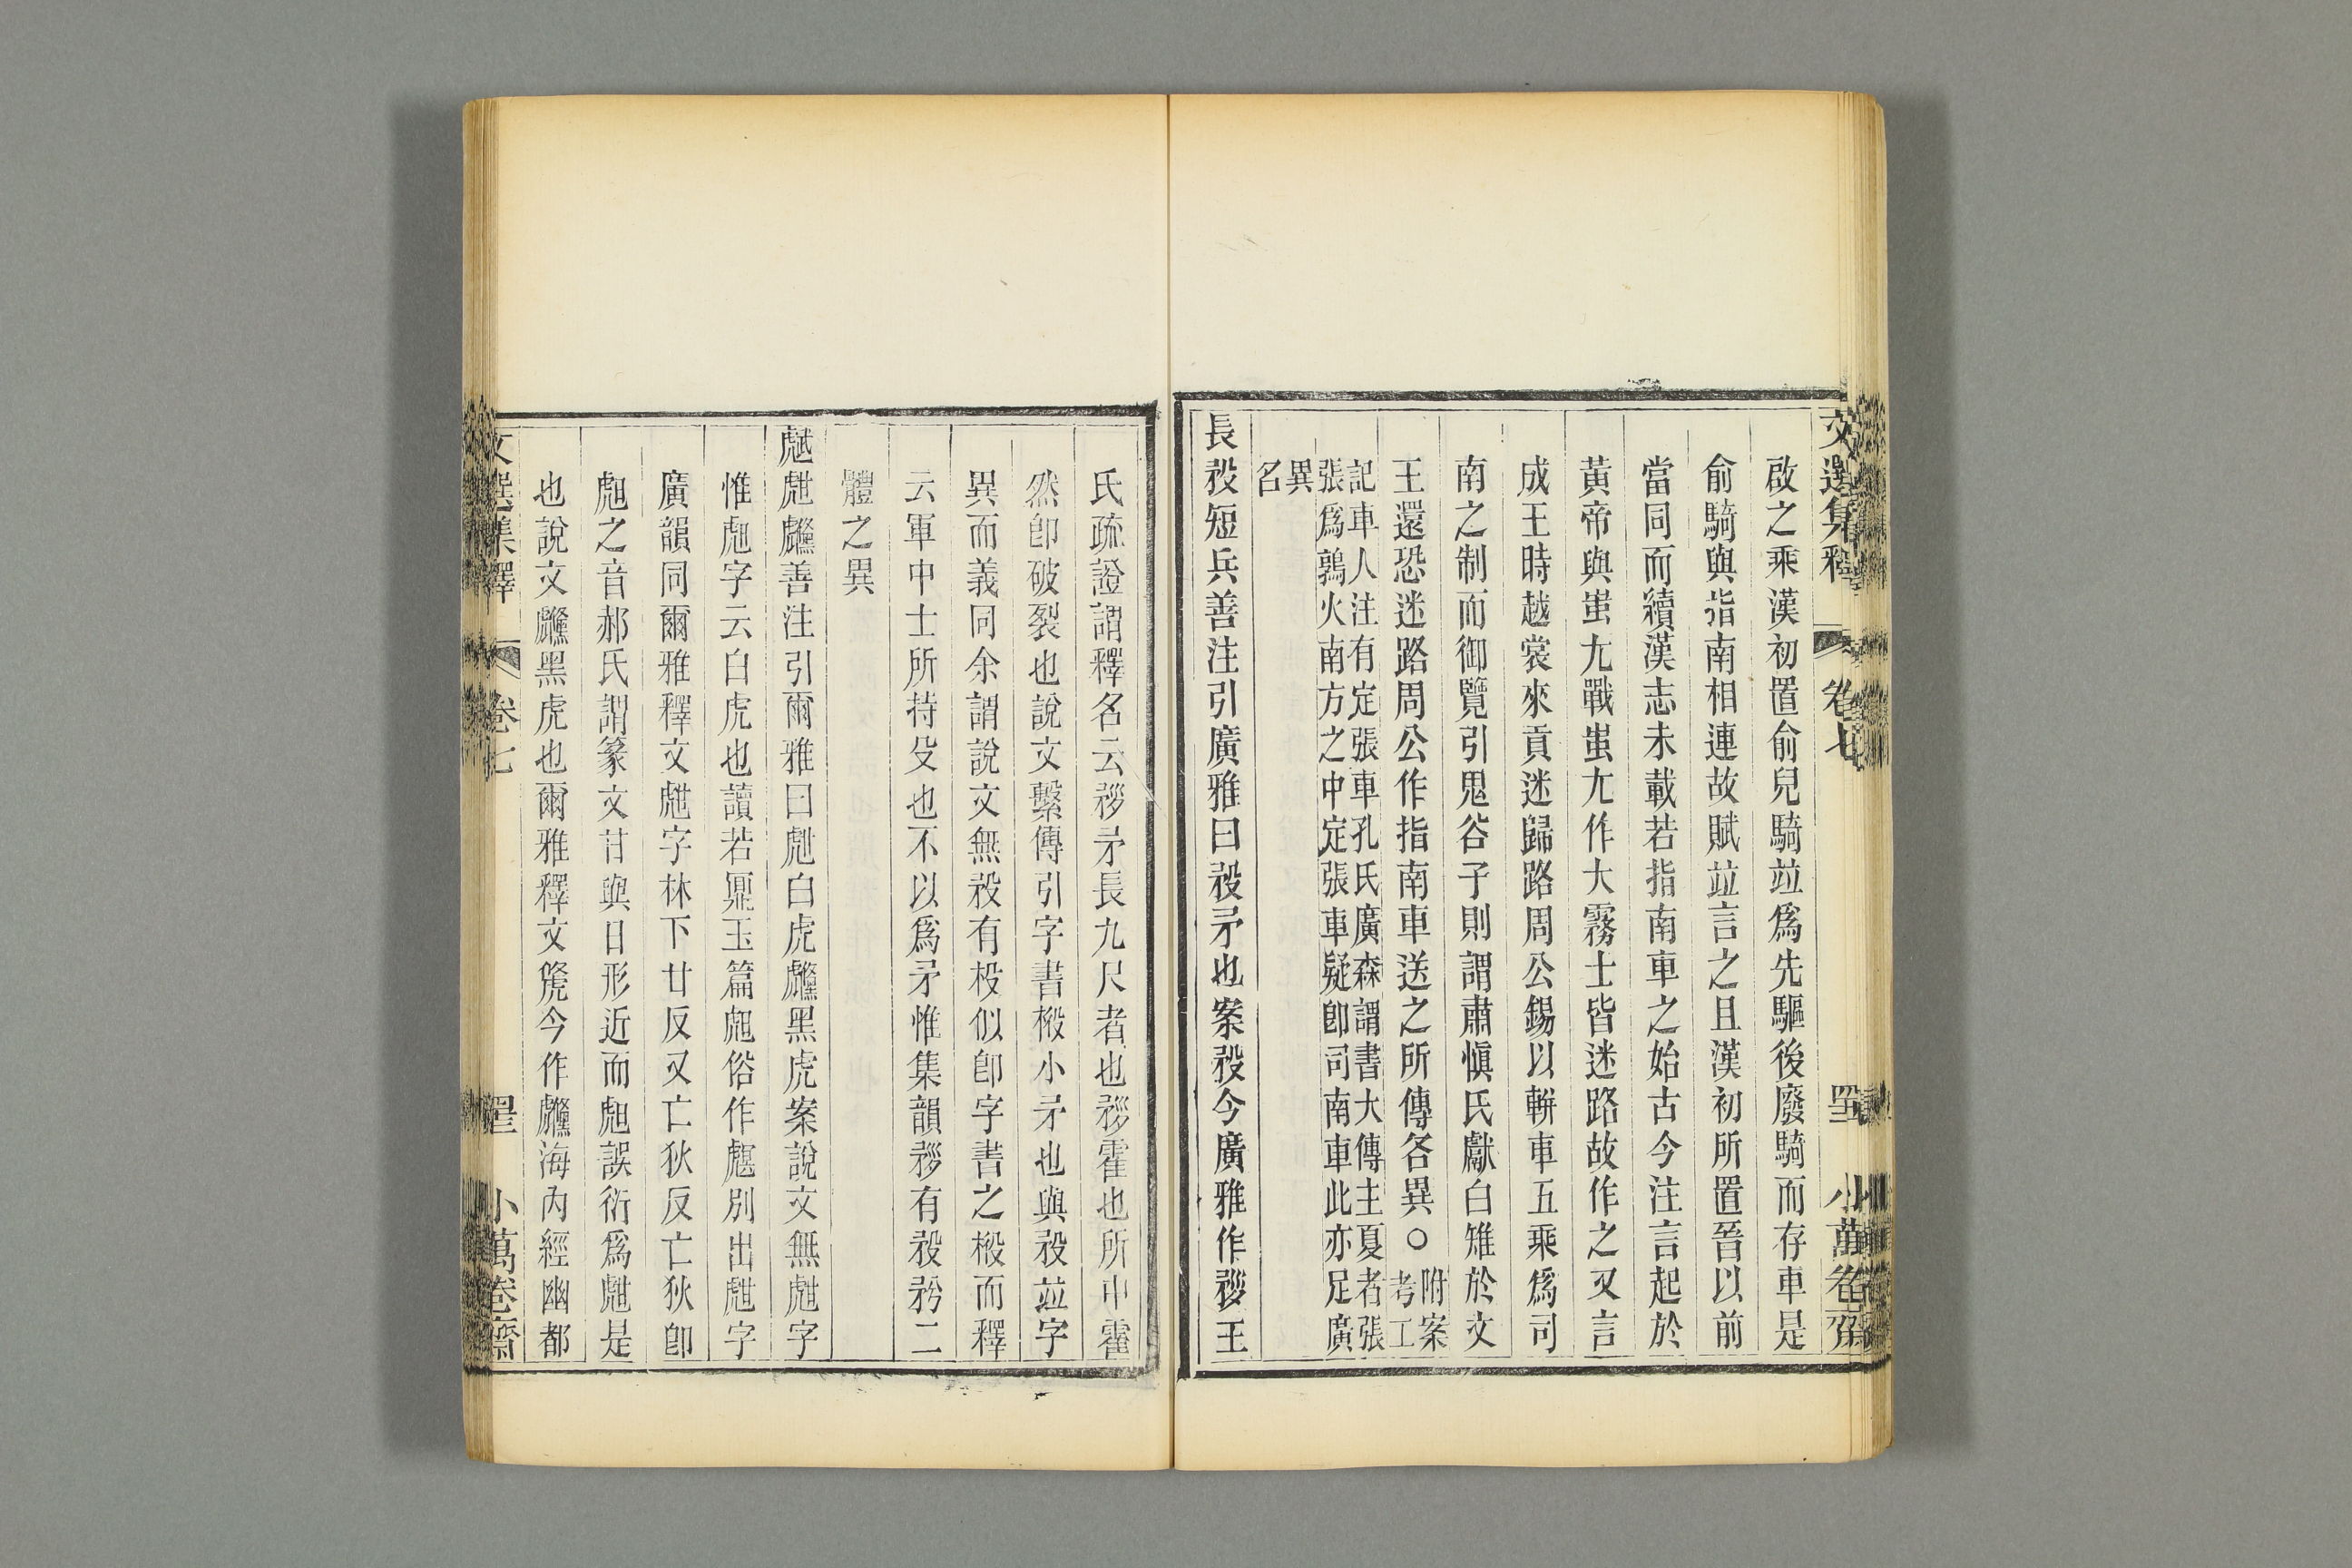 文選集釋 卷七 小萬卷齋
啟之乘漢初置俞兒騎竝爲先驅後廢騎而存車是
俞騎與指南相連故賦竝言之且漢初所置晉以前
當同而續漢志未載若指南車之始古今注言起於
黃帝與蚩尤戰蚩尤作大霧士皆迷路故作之又言
成王時越裳來貢迷歸路周公錫以軿車五乘爲司
南之制而御覽引鬼谷子則謂肅愼氏獻白雉於文
王還恐迷路周公作指南車送之所傳各異○附案考工
記車人注有定張車孔氏廣森謂書大傳主夏者張
張爲鶉火南方之中定張車疑卽司南車此亦足廣
異
名
長殺短兵善注引廣雅曰殺矛也案殺今廣雅作䅋王
氏疏證謂釋名云䅋矛長九尺者也䅋霍也所中霍
然卽破裂也說文繫傳引字書㮶小矛也與殺竝字
異而義同余謂說文無殺有杸似卽字書之㮶而釋
云軍中士所持殳也不以爲矛惟集韻䅋有殺䂆二
體之異
善注引爾雅曰 白虎 黑虎案說文無 字
惟 字云白虎也讀若鼏玉篇 俗作 別出 字
廣韻同爾雅釋文 字林下甘反又亡狄反亡狄卽
 之音郝氏謂篆文甘與日形近而 誤衍爲 是
也說文 黑虎也爾雅釋文 今作 海內經幽都
文選集釋 卷七 小萬卷齋